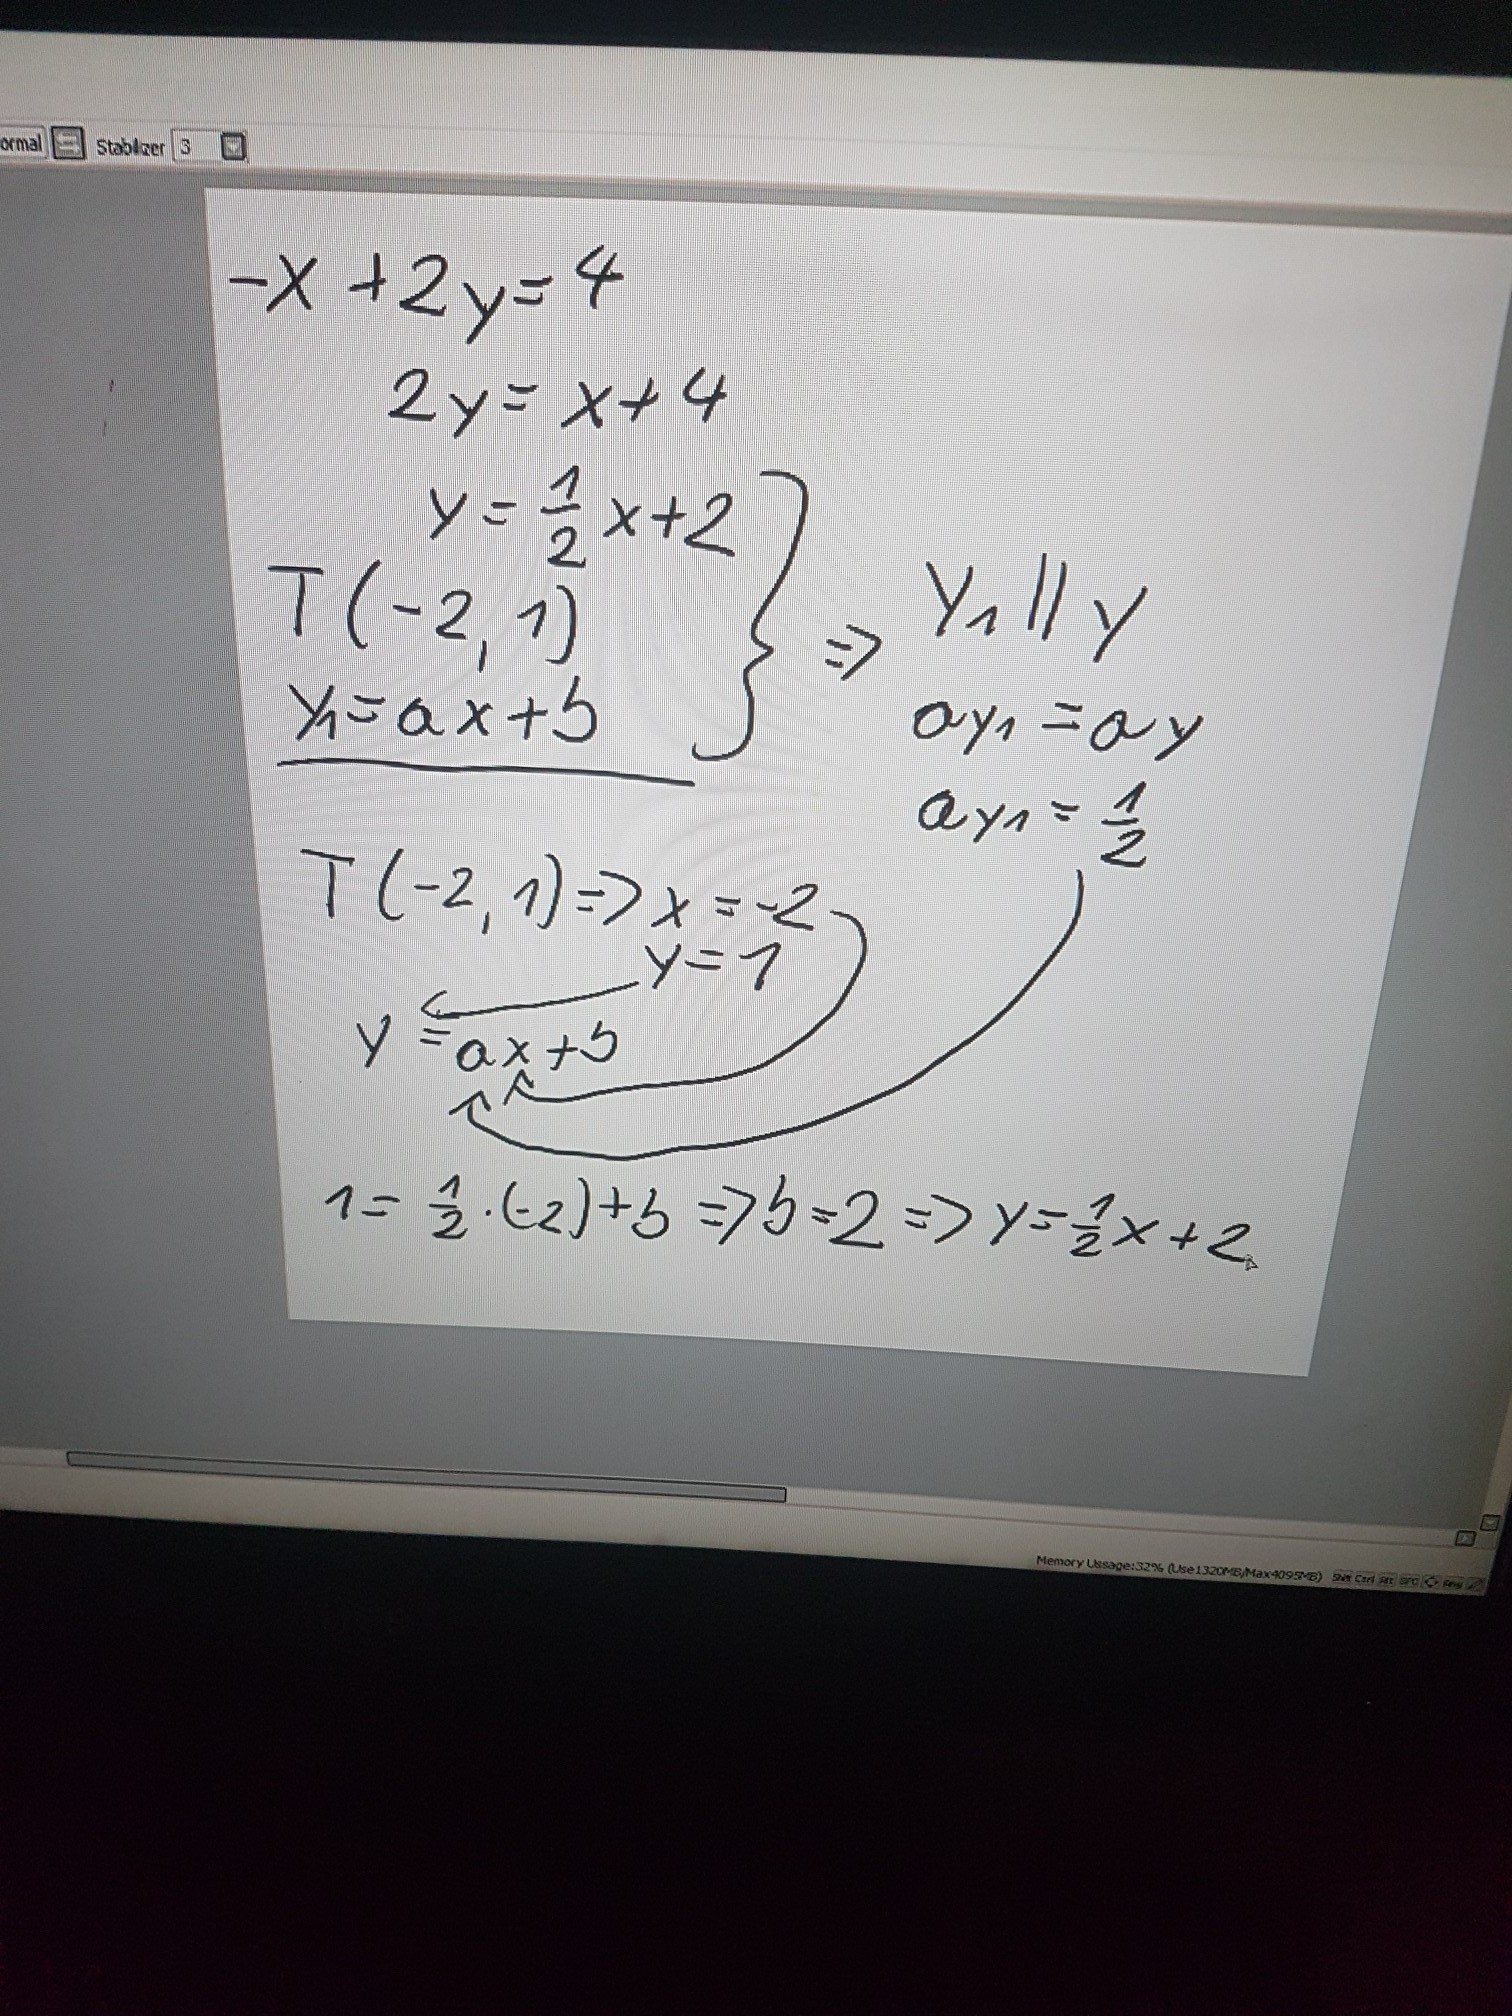 ormal Stabilizer 3
-x + 2y = 4
2y = x + 4
y = 1/2 x + 2
T(-2, 1)
y₁ = ax + b
⇒ y₁ || y
ay₁ = ay
ay₁ = 1/2
T(-2, 1) ⇒ x = -2
y = 1
y = ax + b
1 = 1/2 · (-2) + b ⇒ b = 2 ⇒ y = 1/2 x + 2
Memory Ussage:32% (Use1320MB/Max4095MB) Shift Ctrl Alt SPC Any